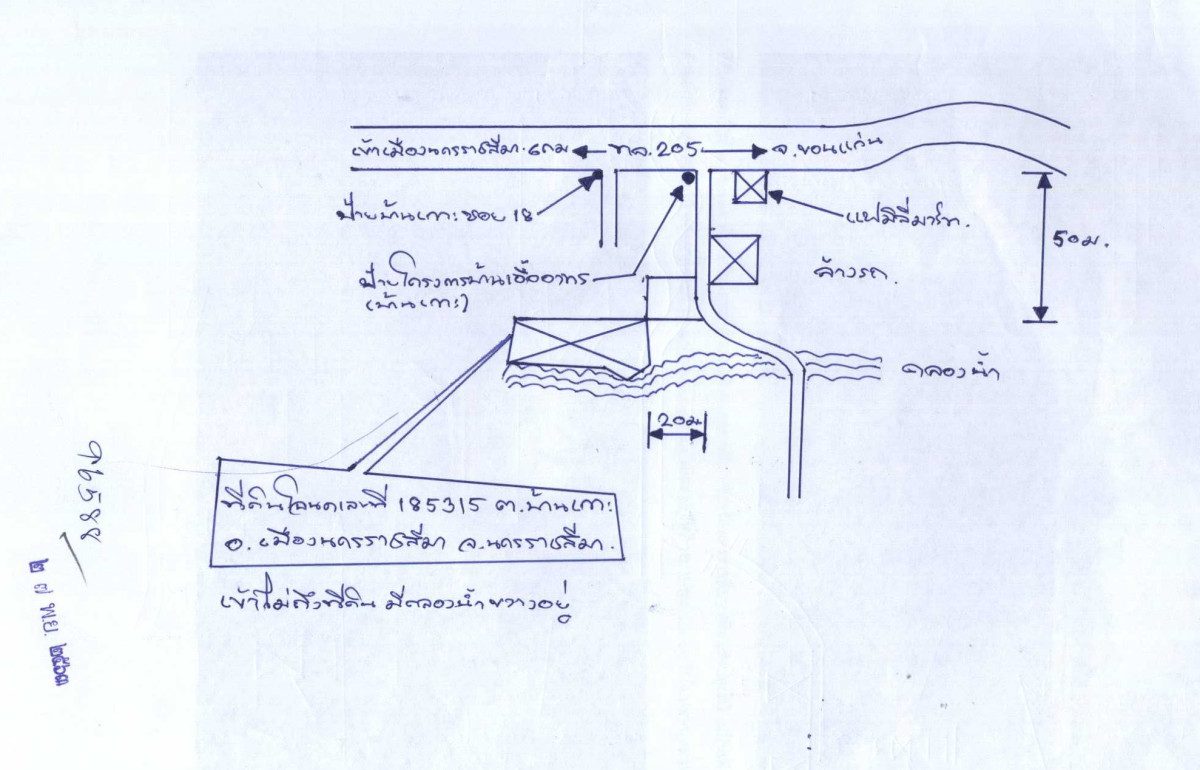 เข้าเมืองนครราชสีมา 6 กม ทล.205 จ.ขอนแก่น
ป้ายบ้านเกาะ ซอย 18
แฟมิลี่มาร์ท.
50 ม.
ป้ายโครงการบ้านเอื้ออาทร
(บ้านเกาะ)
ล้างรถ
คลองน้ำ
20ม
ที่ดินโฉนดเลขที่ 185315 ต.บ้านเกาะ
อ.เมืองนครราชสีมา จ.นครราชสีมา.
เข้าไม่ถึงที่ดิน มีคลองน้ำขวางอยู่
๒๗ พ.ย. ๒๕๖๓